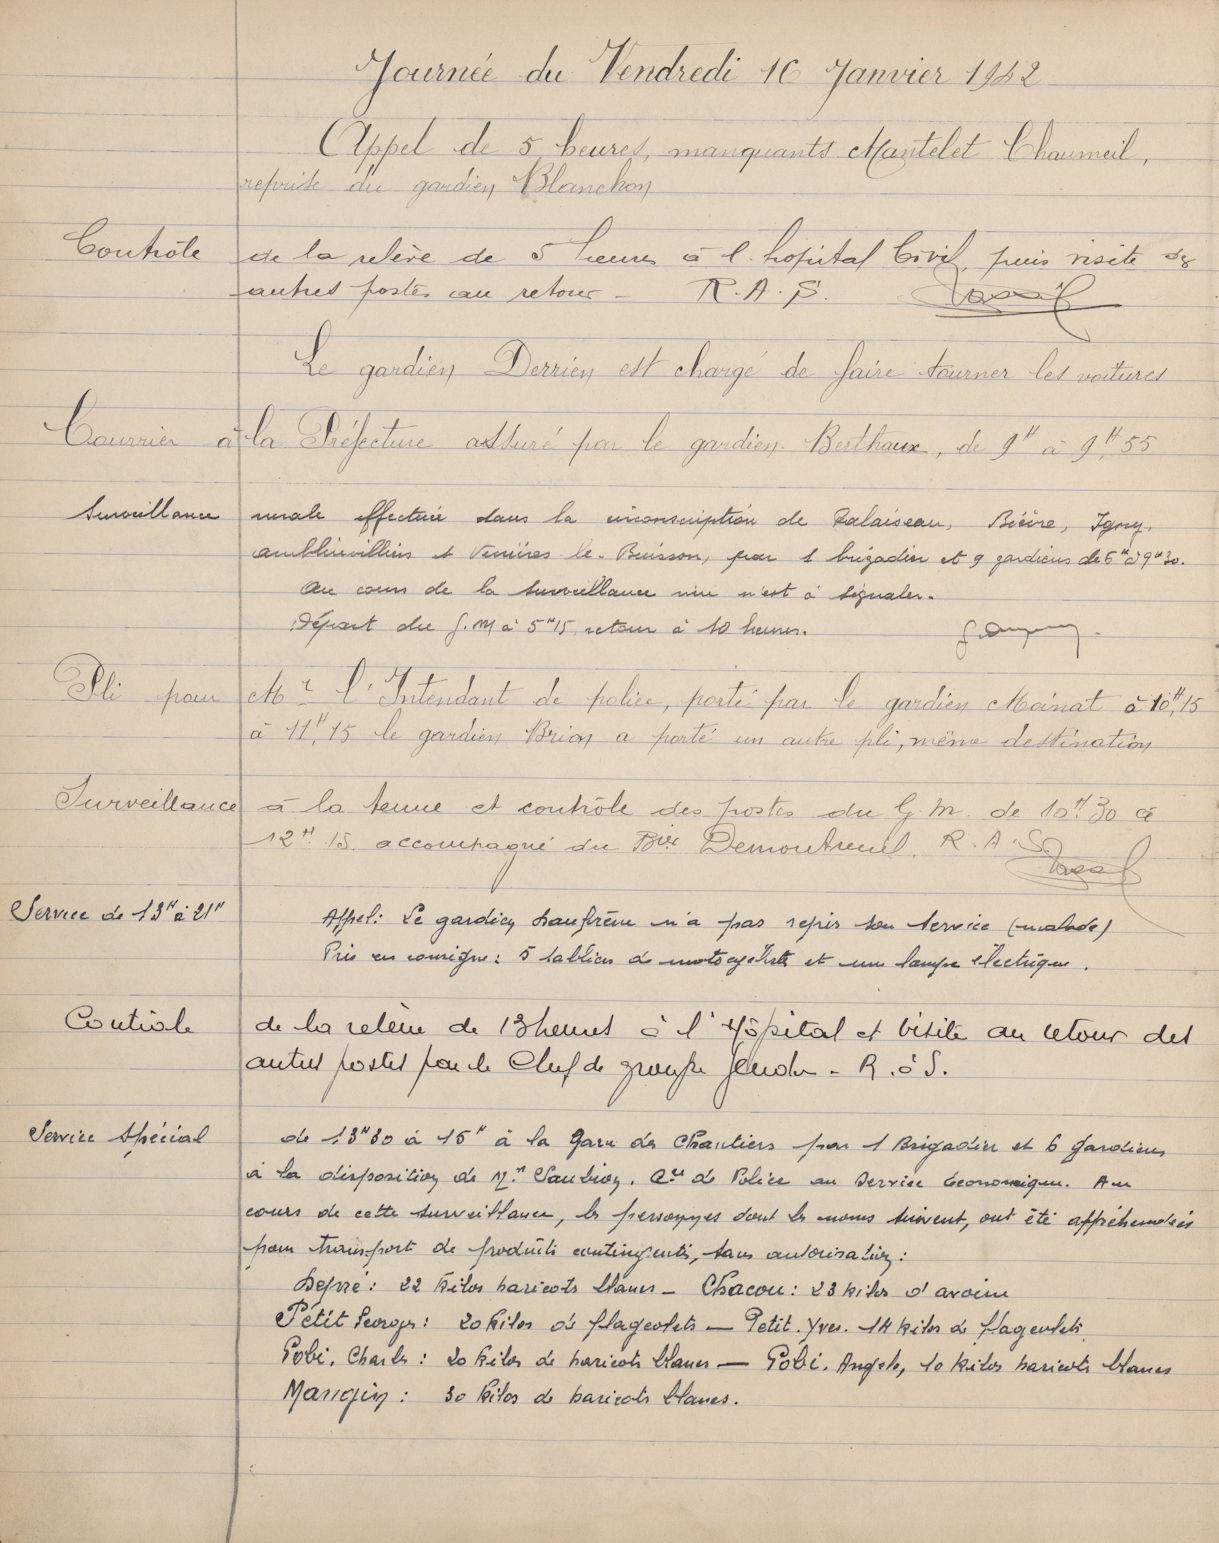 Journée du Vendredi 16 Janvier 1942
Appel de 5 heures, manquants Mantelet Chaumeil,
reprise du gardien Blanchon
Contrôle de la relève de 5 heures à l'hôpital Civil, puis visite des
autres postes au retour - R.A.S.
Le gardien Derrien est chargé de faire tourner les voitures
Courrier à la Préfecture assuré par le gardien Berthaux, de 9H à 9H,55
Surveillance rurale effectuée dans la circonscription de Palaiseau, Bièvre, Igny,
amblainvilliers et Verrières le-Buisson, par 1 brigadier et 9 gardiens de 6H à 9H30.
Au cours de la surveillance rien n'est à signaler.
Départ du G.M à 5H15 retour à 10 heures.
Pli pour Mr l'Intendant de police, porté par le gardien Moinat à 10H,15
à 11H,15 le gardien Brion a porté un autre pli, même destination
Surveillance à la tenue et contrôle des postes du G.M. de 10H30 à
12H15. accompagné du Bier Demontreuil. R.A.S.
Service de 13H à 21H Appel: Le gardien n'a pas repris son service (malade)
Pris en consigne: 5 tabliers de motocycliste et une lampe électrique.
Contrôle de la relève de 13 heures à l'Hôpital et visite au retour des
autres postes par le Chef de groupe - R.à S.
Service spécial de 13H30 à 15H à la Gare des Chantiers par 1 Brigadier et 6 Gardiens
à la disposition de Mr. de Police au Service économique. Au
cours de cette surveillance, les personnes dont les noms suivent, ont été appréhendées
pour transport de produits contingentés, sans autorisation:
Depré: 22 kilos haricots blancs - Chacou: 23 kilos d'avoine
Pétit Georges: 20 kilos de flageolets - Petit. Yves. 14 kilos de flageolets
Pobi, Charles: 20 kilos de haricots blancs - Pobi. Angèle, 10 kilos haricots blancs
Mangin: 30 kilos de haricots blancs.